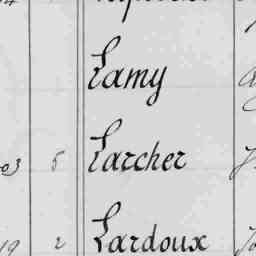 Lamy
03 5 Larcher
19 2 Lardoux